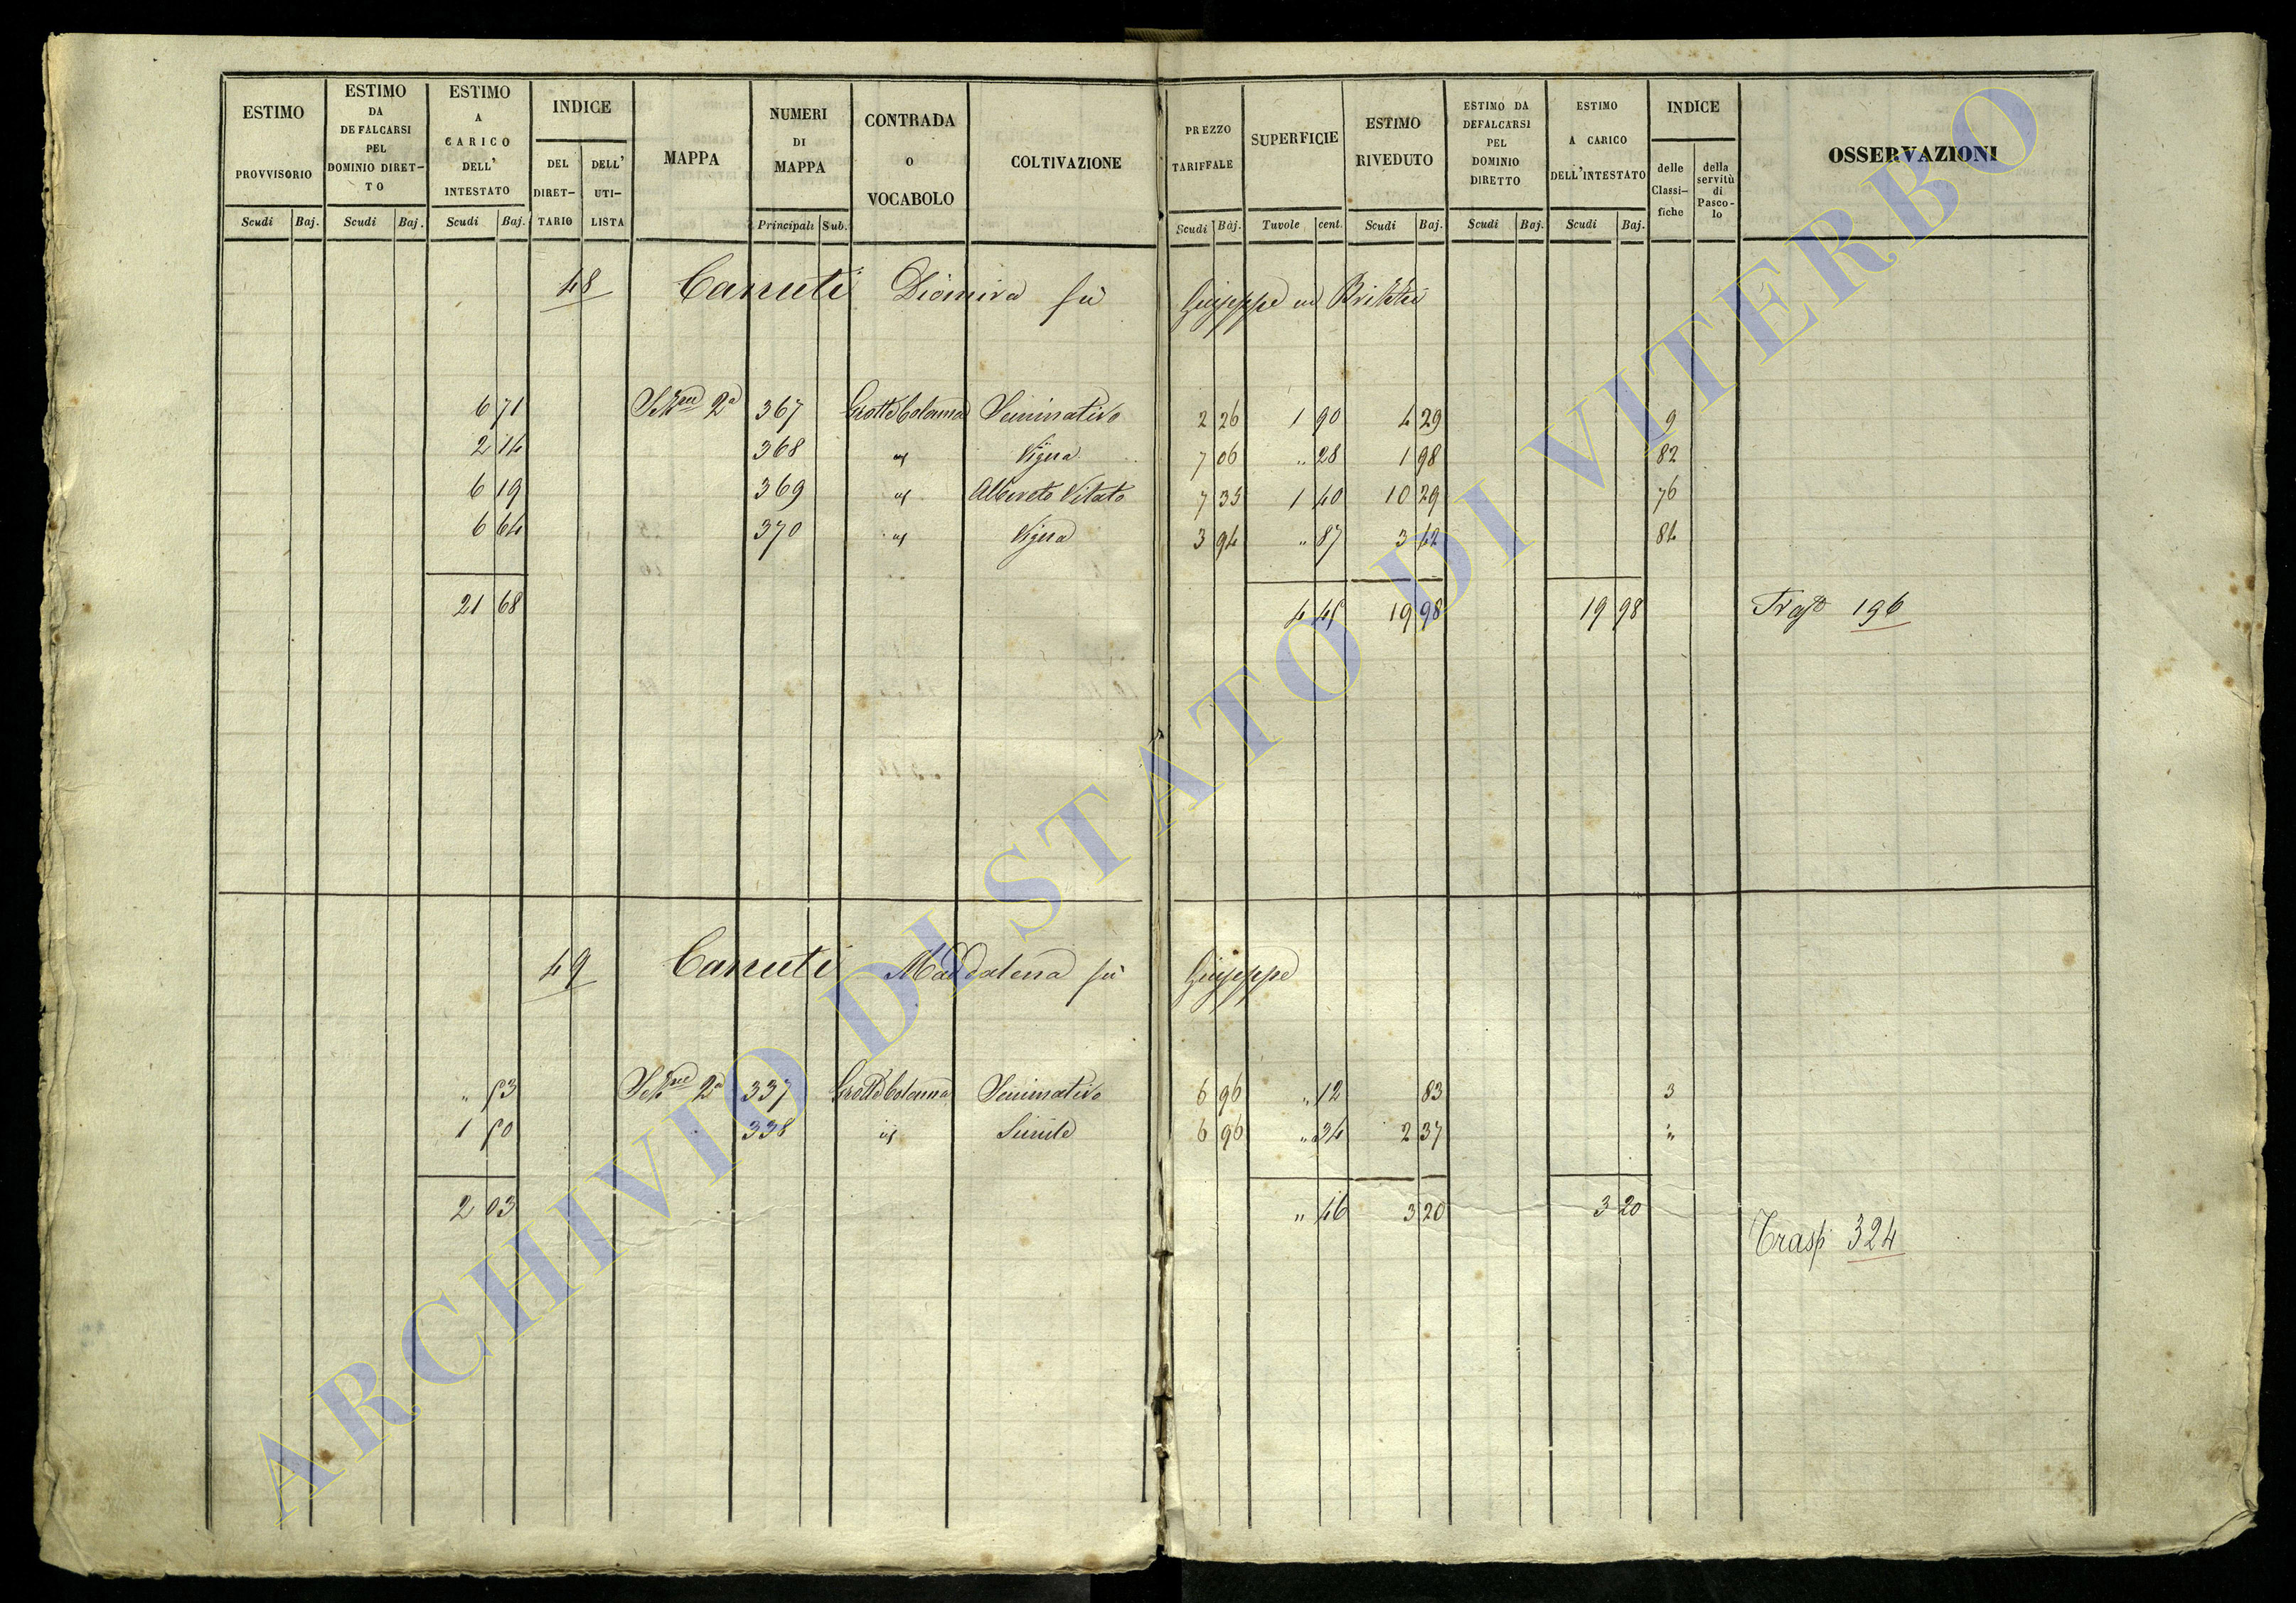 ESTIMO PROVVISORIO Scudi Baj.
ESTIMO DA DEFALCARSI PEL DOMINIO DIRETTO Scudi Baj.
ESTIMO A CARICO DELL' INTESTATO Scudi Baj.
INDICE DEL DIRETTARIO DELL' UTILISTA
MAPPA
NUMERI DI MAPPA Principali Sub.
CONTRADA O VOCABOLO
COLTIVAZIONE
PREZZO TARIFFALE Scudi Baj.
SUPERFICIE Tavole cent.
ESTIMO RIVEDUTO Scudi Baj.
ESTIMO DA DEFALCARSI PEL DOMINIO DIRETTO Scudi Baj.
ESTIMO A CARICO DELL'INTESTATO Scudi Baj.
INDICE delle Classifiche della servitù di Pascolo
OSSERVAZIONI
48 Canuti Diomira fu Giuseppe in
6 71 Sezne 2a 367 Grotte Colonna Seminativo 2 26 1 90 4 29 9
2 14 368 id Vigna 7 06 " 28 1 98 82
6 19 369 id Alberato Vitato 7 35 1 40 10 29 76
6 64 370 id Vigna 3 94 " 87 3 42 84
21 68 4 45 19 98 19 98 Traspo 196
49 Canuti Maddalena fu Giuseppe
" 53 Sezne 2a 337 Grotte Colonna Seminativo 6 96 " 12 83 3
1 50 338 id Simile 6 96 " 34 2 37 "
2 03 " 46 3 20 3 20
Trasp 324
ARCHIVIO DI STATO DI VITERBO